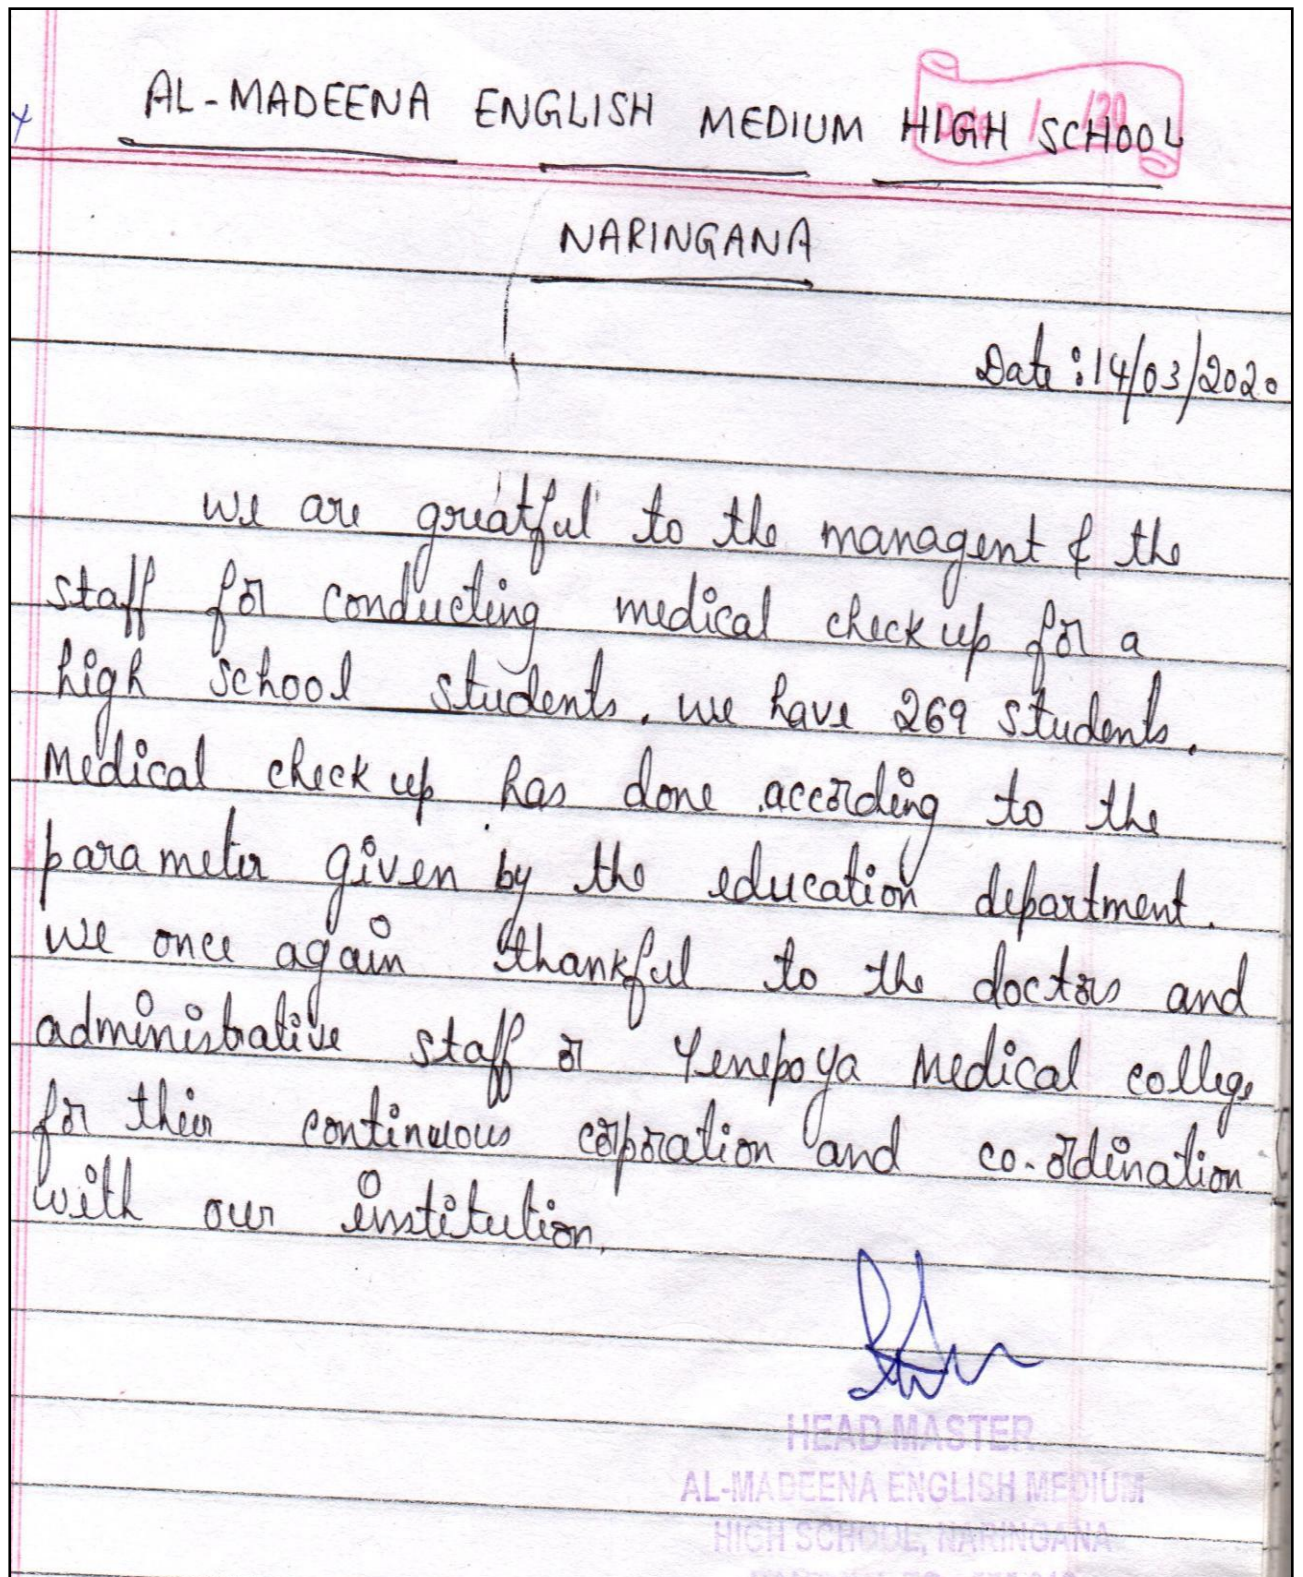 AL-MADEENA ENGLISH MEDIUM HIGH SCHOOL
Date / /20
NARINGANA
Date : 14/03/2020
We are greatful to the managent & the
staff for conducting medical check up for a
high school students. we have 269 students.
Medical check up has done according to the
parameter given by the education department.
we once again thankful to the doctors and
administrative staff or Yenepoya Medical college
for their continuous corporation and co-ordination
with our institution.
HEAD MASTER
AL-MADEENA ENGLISH MEDIUM
HIGH SCHOOL, NARINGANA